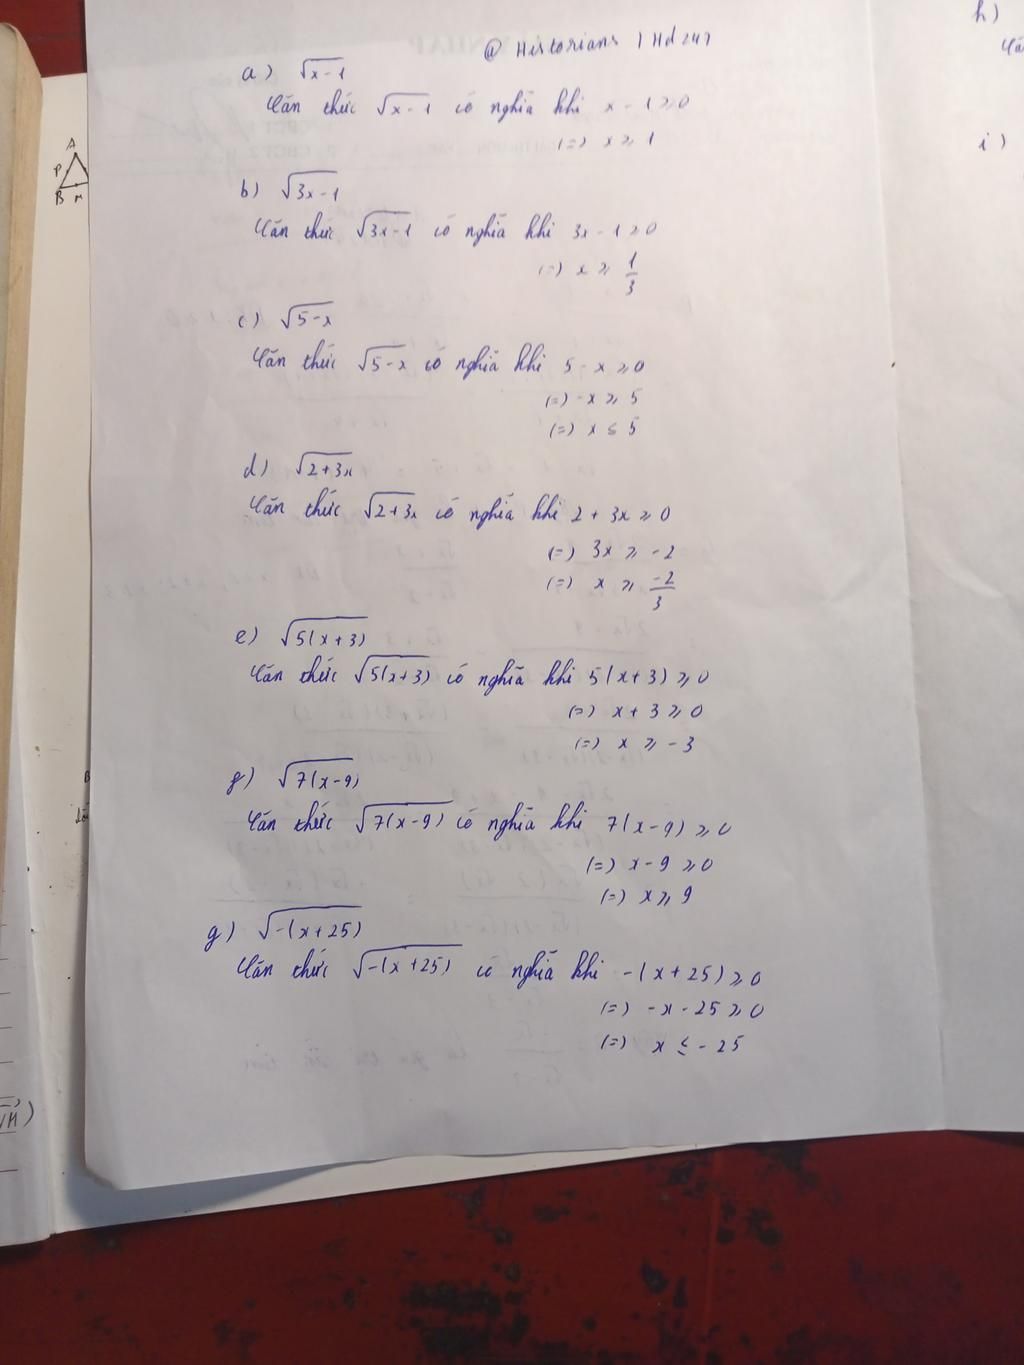 @ Historians | Hd247
a) √x-1
Căn thức √x-1 có nghĩa khi x - 1 ≥ 0
(=) x ≥ 1
b) √3x-1
Căn thức √3x-1 có nghĩa khi 3x - 1 ≥ 0
(=) x ≥ 1/3
c) √5-x
Căn thức √5-x có nghĩa khi 5 - x ≥ 0
(=) -x ≥ 5
(=) x ≤ 5
d) √2+3x
Căn thức √2+3x có nghĩa khi 2 + 3x ≥ 0
(=) 3x ≥ -2
(=) x ≥ -2/3
e) √5(x+3)
Căn thức √5(x+3) có nghĩa khi 5(x+3) ≥ 0
(=) x + 3 ≥ 0
(=) x ≥ -3
f) √7(x-9)
Căn thức √7(x-9) có nghĩa khi 7(x-9) ≥ 0
(=) x - 9 ≥ 0
(=) x ≥ 9
g) √-(x+25)
Căn thức √-(x+25) có nghĩa khi -(x+25) ≥ 0
(=) -x - 25 ≥ 0
(=) x ≤ -25
h)
i)
A
P
B M